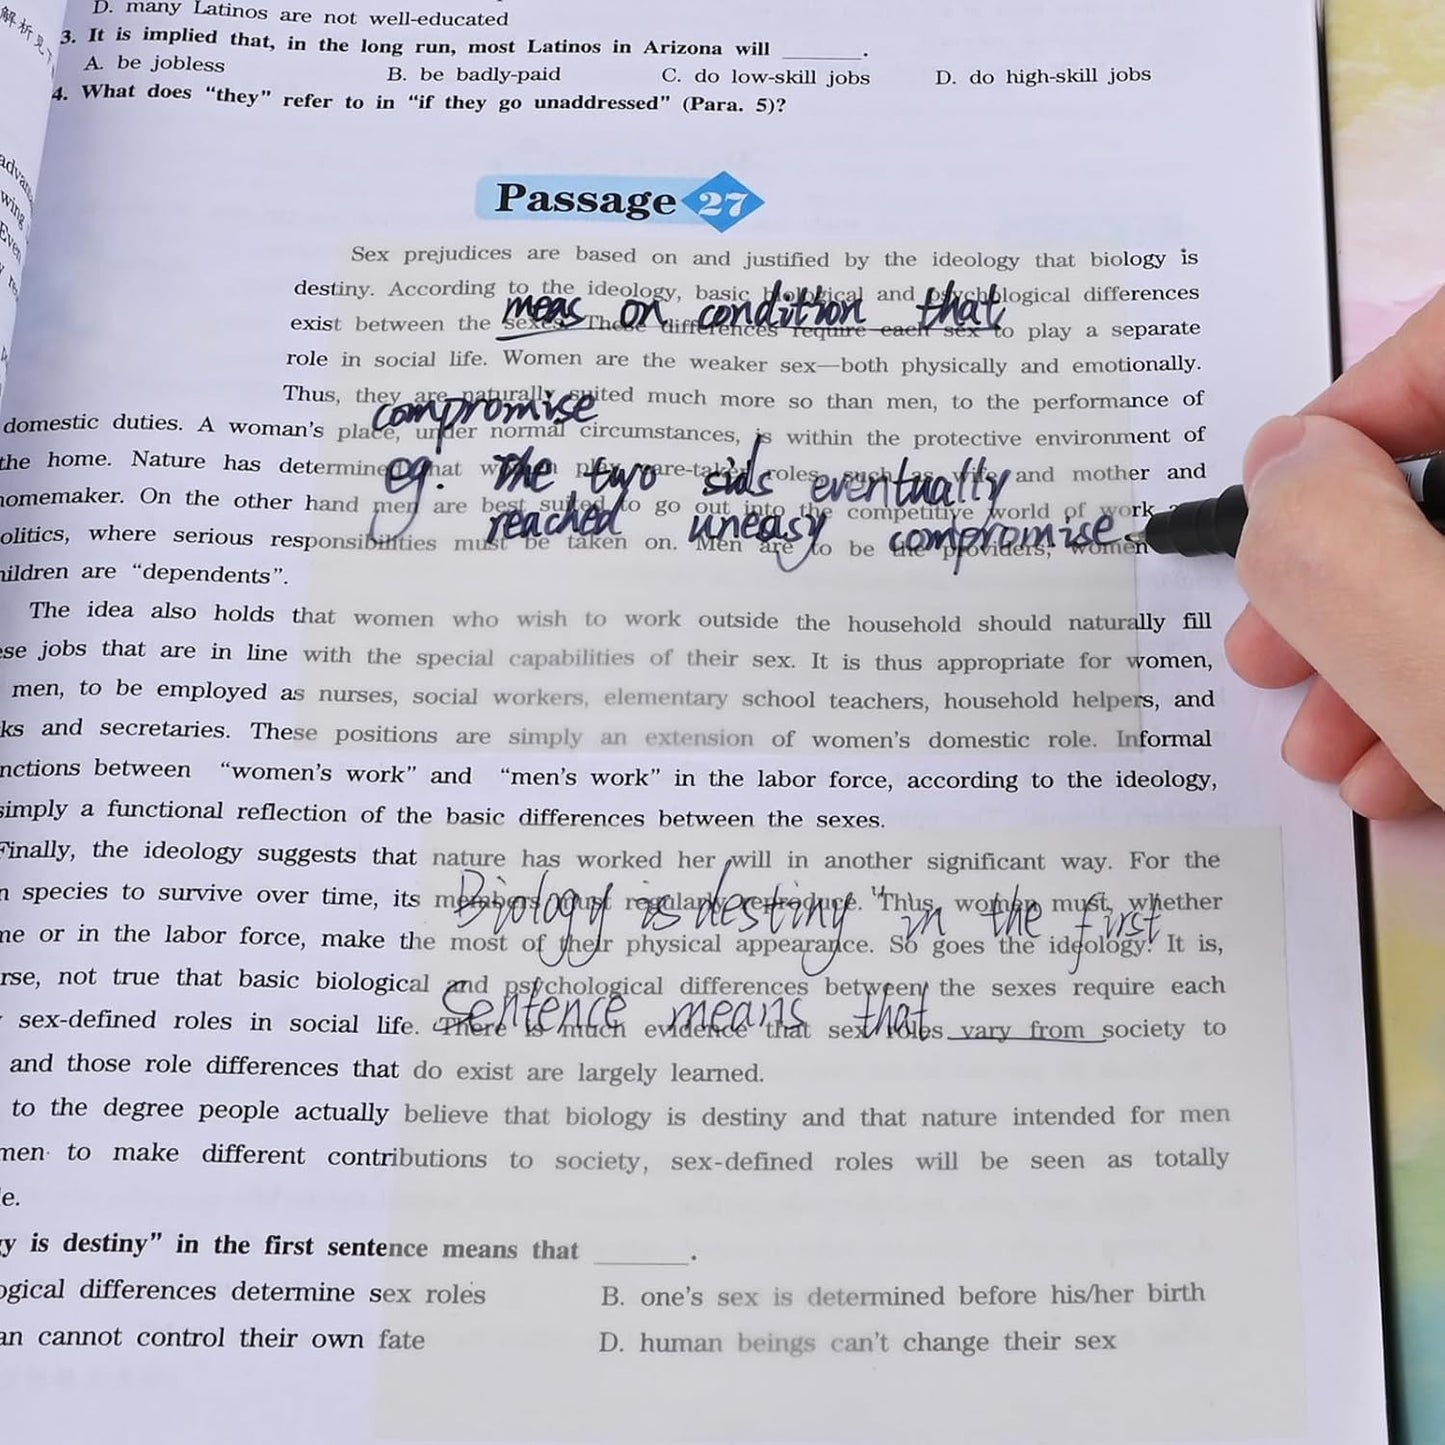 解析见
D. many Latinos are not well-educated
3. It is implied that, in the long run, most Latinos in Arizona will ______.
A. be jobless B. be badly-paid C. do low-skill jobs D. do high-skill jobs
4. What does “they” refer to in “if they go unaddressed” (Para. 5)?
Passage 27
Sex prejudices are based on and justified by the ideology that biology is
destiny. According to the ideology, basic biological and psychological differences
meas on condition that
exist between the sexes. These differences require each sex to play a separate
role in social life. Women are the weaker sex—both physically and emotionally.
Thus, they are naturally suited much more so than men, to the performance of
compromise
domestic duties. A woman's place, under normal circumstances, is within the protective environment of
the home. Nature has determined that women play care-taker roles, such as wife and mother and
eg: the two sids eventually
homemaker. On the other hand men are best suited to go out into the competitive world of work
reached uneasy compromise
olitics, where serious responsibilities must be taken on. Men are to be the providers; women
hildren are “dependents”.
The idea also holds that women who wish to work outside the household should naturally fill
ese jobs that are in line with the special capabilities of their sex. It is thus appropriate for women,
men, to be employed as nurses, social workers, elementary school teachers, household helpers, and
ks and secretaries. These positions are simply an extension of women's domestic role. Informal
nctions between “women's work” and “men's work” in the labor force, according to the ideology,
simply a functional reflection of the basic differences between the sexes.
Finally, the ideology suggests that nature has worked her will in another significant way. For the
n species to survive over time, its members must regularly reproduce. Thus, women must, whether
Biology is destiny " in the first
me or in the labor force, make the most of their physical appearance. So goes the ideology. It is,
rse, not true that basic biological and psychological differences between the sexes require each
Sentence means that
sex-defined roles in social life. There is much evidence that sex roles vary from society to
and those role differences that do exist are largely learned.
to the degree people actually believe that biology is destiny and that nature intended for men
men to make different contributions to society, sex-defined roles will be seen as totally
le.
gy is destiny” in the first sentence means that ______.
ogical differences determine sex roles B. one's sex is determined before his/her birth
an cannot control their own fate D. human beings can't change their sex